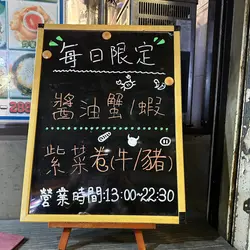 每日限定
醬油蟹/蝦
紫菜卷(牛/豬)
營業時間:13:00~22:30